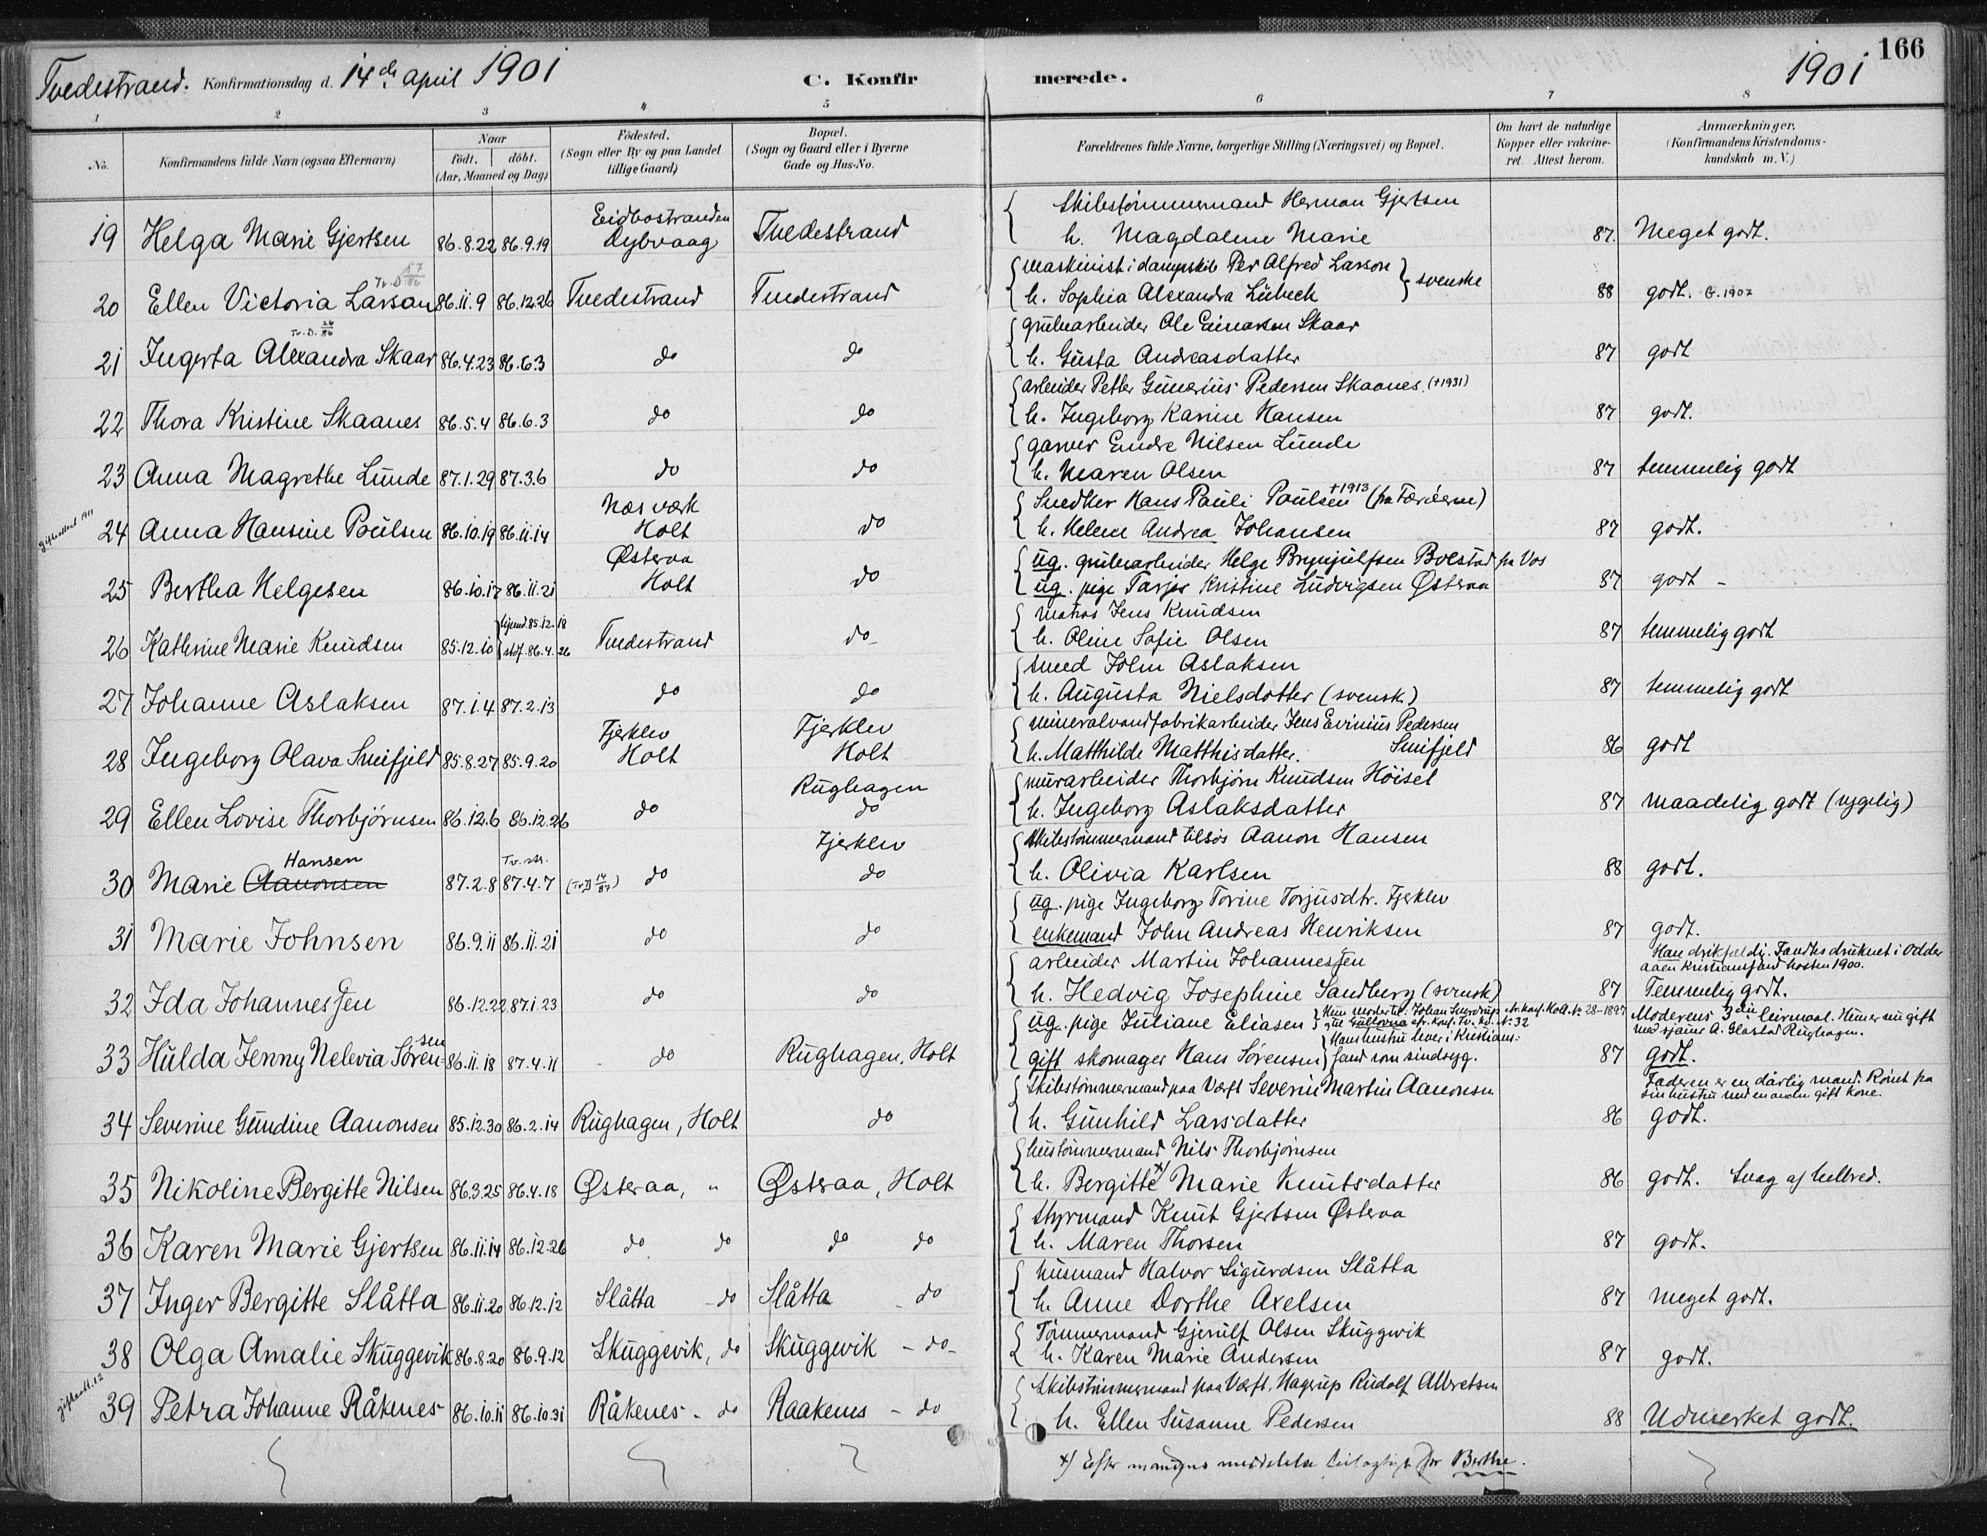 Tvedestrand. Konfirmationsdag d. 14de april 1901 C. Konfirmerede. 1901 166
1 2 3 4 5 6 7 8
No. Konfirmandens fulde Navn (ogsaa Efternavn) Naar født. døbt. (Aar, Maaned og Dag) Fødested. (Sogn eller By og paa Landet tillige Gaard) Bopæl. (Sogn og Gaard eller i Byerne Gade og Hus-No. Forældrenes fulde Navne, borgerlige Stilling (Næringsvei) og Bopæl. Om havt de naturlige Kopper eller vakcineret. Attest herom. Anmærkninger. (Konfirmandens Kristendomskundskab m. V.)
Eidbostranden Skibstømmermand Herman Gjertsen
19 Helga Marie Gjertsen 86.8.22 86.9.19 dybvaag Tvedestrand h. Magdalene Marie 87. Meget godt.
Tv. D. 57/86 maskinist i dampskib Per Alfred Larson
20 Ellen Victoria Larson 86.11.9 86.12.26 Tvedestrand Tvedestrand h. Sophia Alexandra Lübeck } svenske 88 godt. G. 1907
Tv. D. 24/86 grubearbeider Ole Einarsen Skaar
21 Ingerta Alexandra Skaar 86.4.23 86.6.3 do do h. Gusta Andreasdatter 87 godt
arbeider Petter Gunerius Pedersen Skaanes. (+1931)
22 Thora Kristine Skaanes 86.5.4 86.6.3 do do h. Ingeborg Karine Hansen 87 godt.
garver Endre Nilsen Lunde
23 Anna Magrethe Lunde 87.1.29 87.3.6 do do h. Maren Olsen 87 temmelig godt
Næs værk Snedker Hans Pauli Poulsen +1913 (fra Færøerne)
24 Anna Hansine Poulsen 86.10.19 86.11.14 Holt do h. Helene Andrea Johansen 87 godt.
Østeraa ug. grubearbeider Helge Brynjulfsen Bolstad fra Vos
25 Bertha Helgesen 86.10.17 86.11.21 Holt do ug. pige Tarjer Kristine Ludvigsen Østeraa 87 godt -
hjemd. 85.12.18 matros Jens Knudsen
26 Kathrine Marie Knudsen 85.12.10 stdf. 86.4.26 Tvedestrand do h. Oline Sofie Olsen 87 temmelig godt
smed John Aslaksen
27 Johanne Aslaksen 87.1.4 87.2.13 do do h. Augusta Nielsdotter (svensk) 87 temmelig godt
Fjerklev Fjerklev mineralvandfabrikarbeider Jens Evinius Pedersen
28 Ingeborg Olava Snifjeld 85.8.27 85.9.20 Holt Holt h. Matthilde Matthisdatter. Snifjeld 86 godt
Rughagen murarbeider Thorbjørn Knudsen Høisel
29 Ellen Lovise Thorbjørnsen 86.12.6 86.12.26 do do h. Ingeborg Aslaksdatter 87 maadelig godt (sygelig)
Hansen Tv. str. Fjerklev Skibstømmermand tilsøs Aanon Hansen
30 Marie Aanonsen 87.2.8 87.4.7 (Tv. D 14/87) do do h. Olivia Karlsen 88 godt.
ug. pige Ingeborg Torine Torjusdtr. Fjerklev
31 Marie Johnsen 86.9.11 86.11.21 do do enkemand John Andreas Henriksen 87 godt.
arbeider Martin Johannessen Han drikfældig. Fandtes druknet i Odderaaen Kristiansand høsten 1900.
32 Ida Johannessen 86.12.22 87.1.23 do do h. Hedvig Josephine Sandberg (svensk) 87 Temmelig godt.
ug. pige Juliane Eliasen Moderens 3die leiermaal. Hun er nu gift
33 Hulda Jenny Nelevia Sørensen 86.11.18 87.4.11 do Rughagen, Holt gift skomager Hans Sørensen Hans hustru lever i Kristiansand som sindsyg. 87 godt.
Skibstømmermand paa Værft Severin Martin Aanonsen Faderen er en dårlig mand. Rømt fra sin hustru med en anden gift kone.
34 Severine Gundine Aanonsen 85.12.30 86.2.14 Rughagen, Holt do h. Gunhild Larsdatter 86 godt.
hustømmermand Nils Thorbjørnsen
35 Nikoline Bergitte Nilsen 86.3.25 86.4.18 Østeraa, " Østeraa, Holt h. Bergitte x) Marie Knutsdatter 86 godt. Svag af helbred.
Styrmand Knut Gjertsen Østeraa
36 Karen Marie Gjertsen 86.11.14 86.12.26 do do do do h. Maren Thorsen 87 godt.
husmand Halvor Sigurdsen Slåtta
37 Inger Bergitte Slåtta 86.11.20 86.12.12 Slåtta - do Slåtta - do h. Anne Dorthe Axelsen 87 meget godt.
Tømmermand Gjerulf Olsen Skuggevik
38 Olga Amalie Skuggevik 86.8.20 86.9.12 Skuggevik, do Skuggevik - do - h. Karen Marie Andersen 87 godt.
Skibstømmermand paa Værft, Hagerup Rudolf Albretsen
39 Petra Johanne Råkenes 86.10.11 86.10.31 Råkenes - do Raakenes - do h. Ellen Susanne Pedersen 88 Udmerket godt.
x) Efter mandens meddelelse for Berthe.